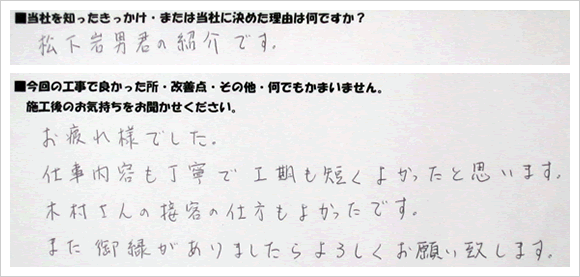 ■当社を知ったきっかけ・または当社に決めた理由は何ですか？
松下岩男君の紹介です。
■今回の工事で良かった所・改善点・その他・何でもかまいません。
施工後のお気持ちをお聞かせください。
お疲れ様でした。
仕事内容も丁寧で工期も短くよかったと思います。
木村さんの接客の仕方もよかったです。
また御縁がありましたらよろしくお願い致します。